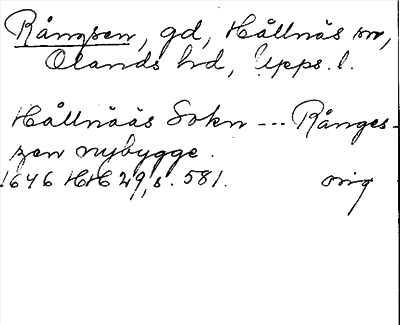 Rångsen, gd, Hållnäs sn,
Olands hd, Upps. l.
Hållnääs Sokn --- Rånges-
zen nybygge.
1646 HH 29, s. 581. orig